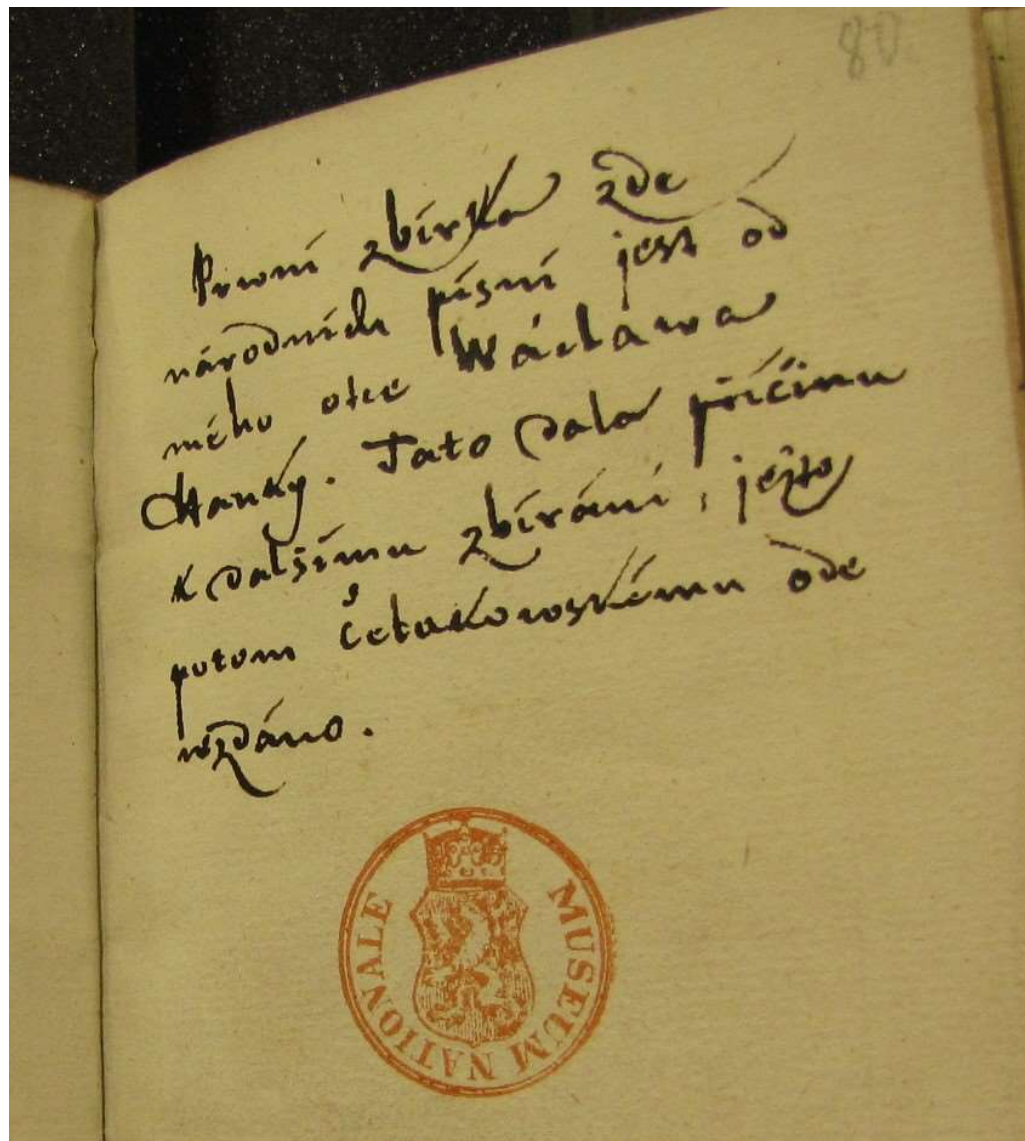 80
Prwní zbírka zde
národních písní jest od
mého otce Wáclawa
Hanky. Tato dala příčinu
k dalssímu zbírání, jejžto
potom Čelakowskému ode
wzdáno.
MUSEUM NATIONALE